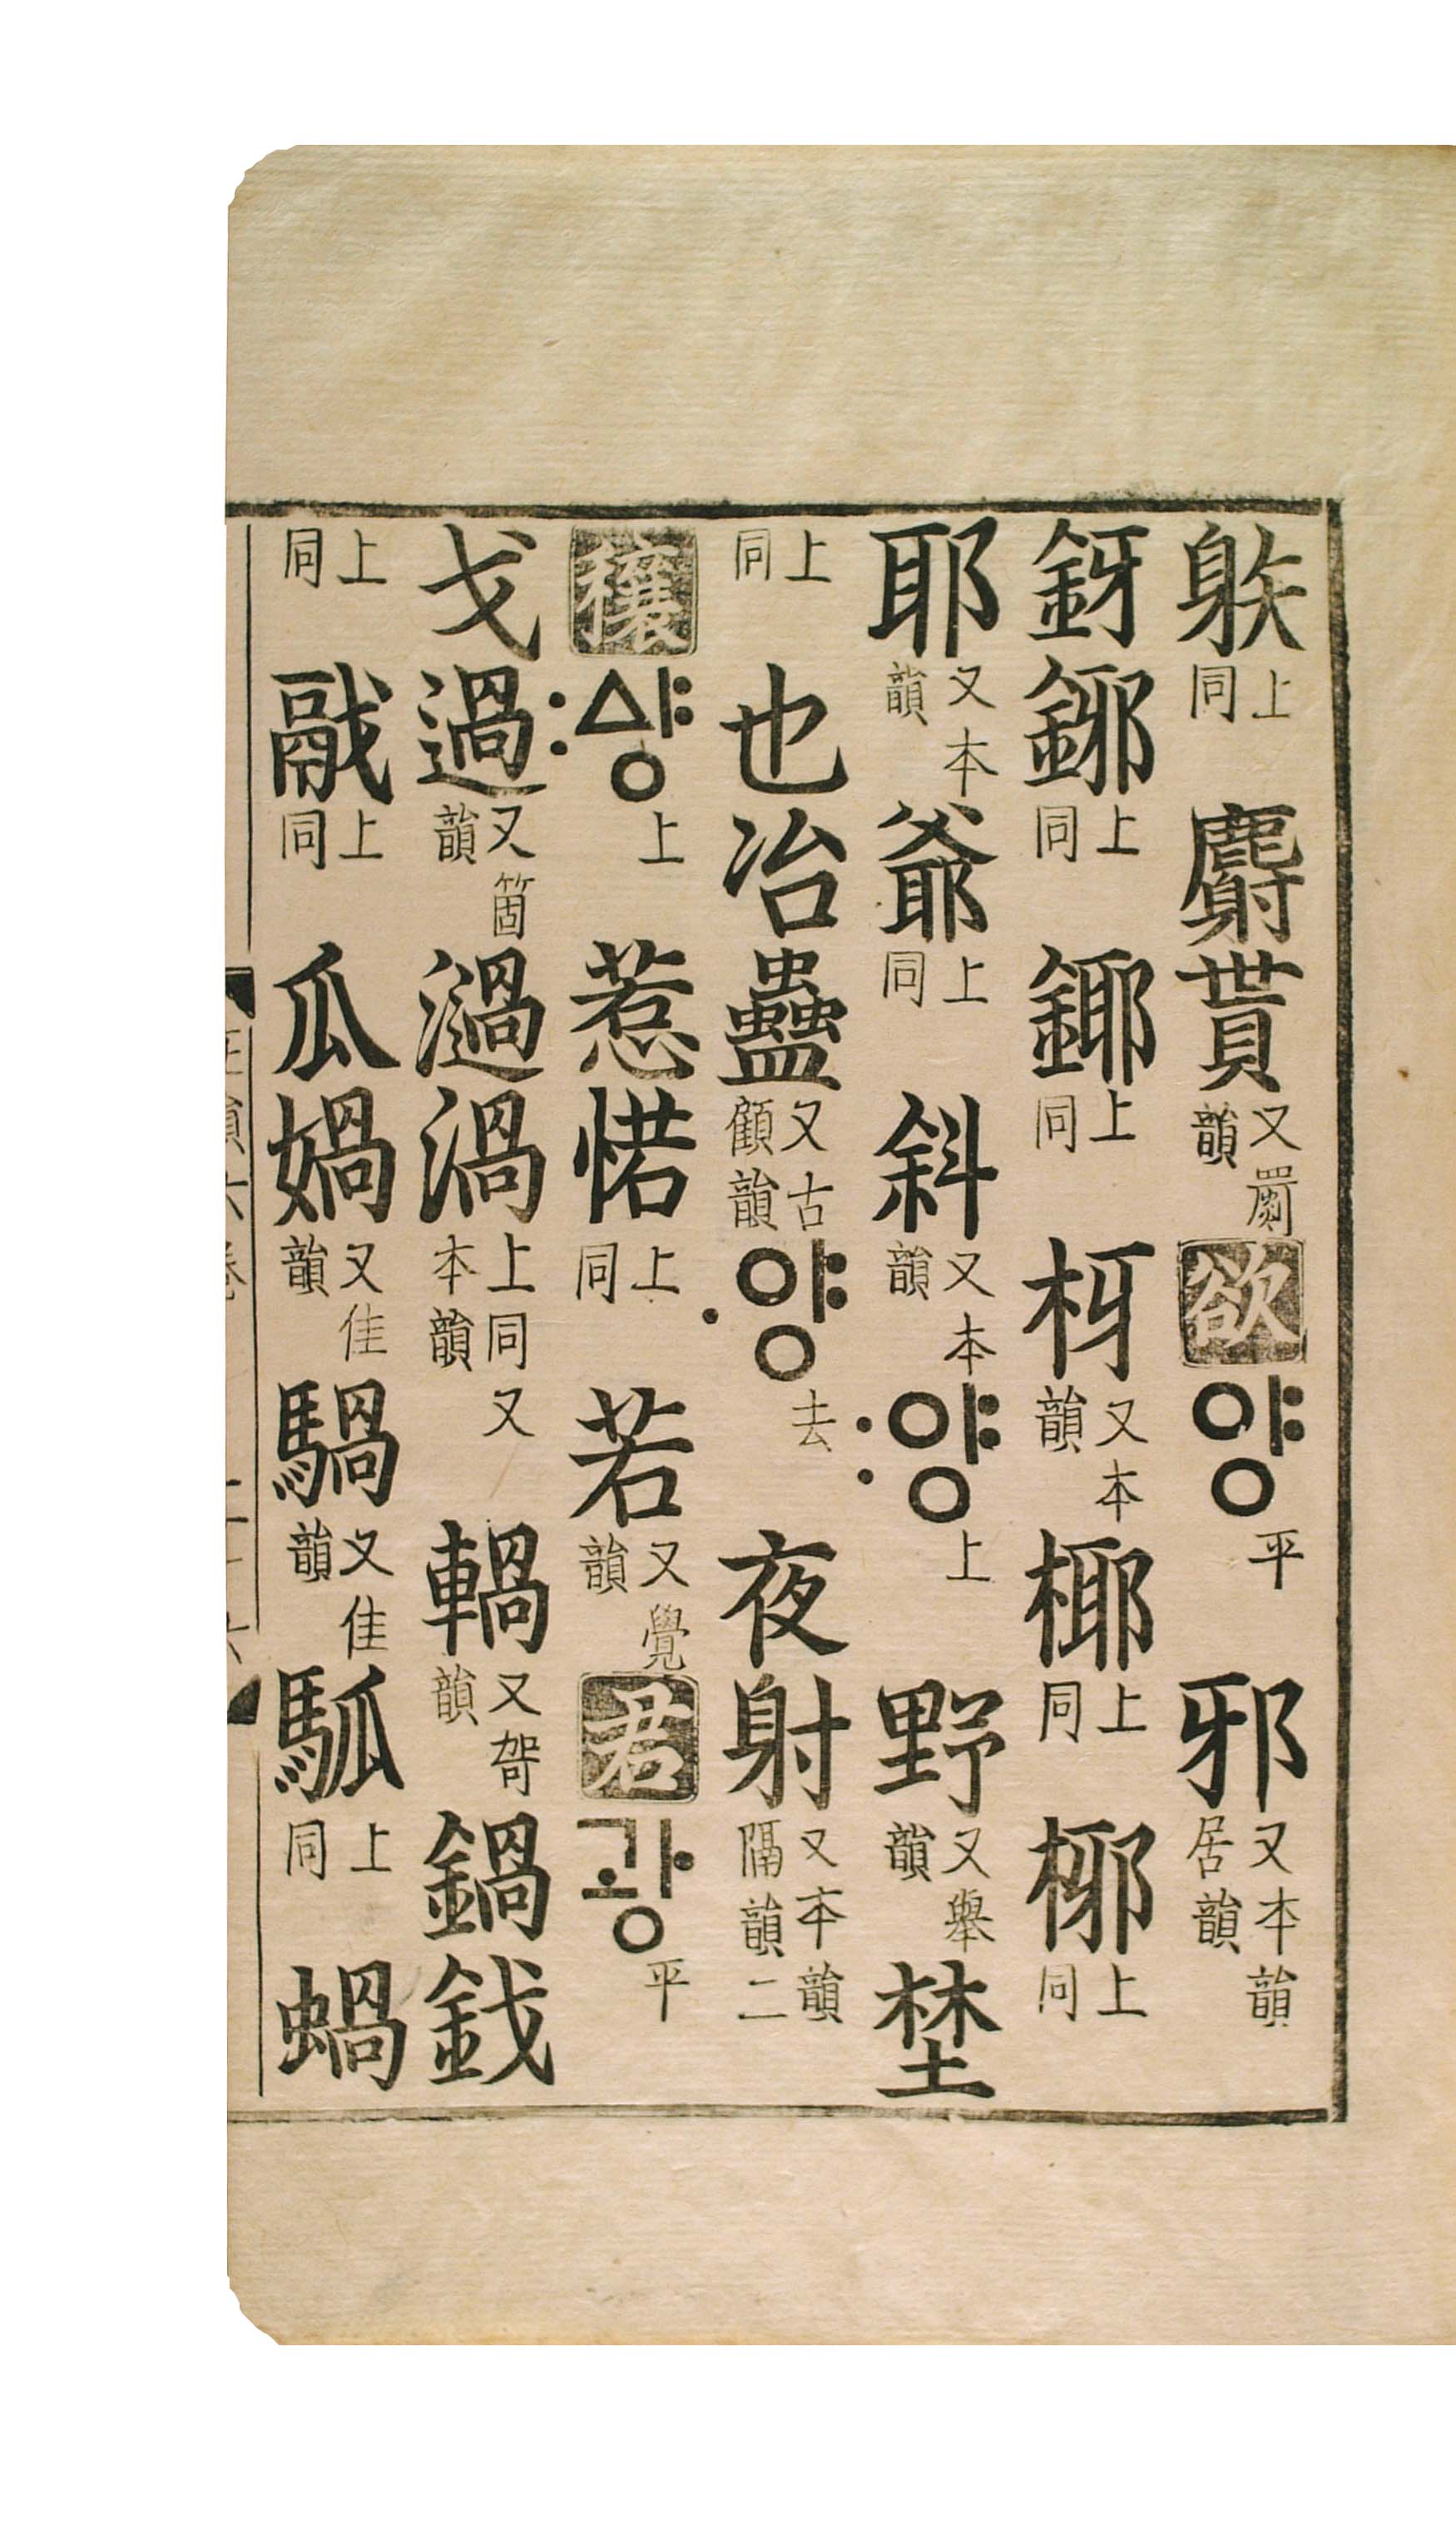 䠶上同麝貰又罽韻欲양平邪又本韻居韻
釾鋣上同鎁上同枒又本韻椰上同上同
耶又本韻爺上同斜又本韻〯양上野又舉韻埜
上同也冶蠱又古顧韻〮양去夜射又本韻隔韻二
穰〯ᅀᅣᆼ上惹㤩上同若又覺韻君광平
戈過又箇韻濄渦上同又本韻䡐又哿韻鍋鈛
上同䰛上同瓜媧又佳韻騧又佳韻上同蝸